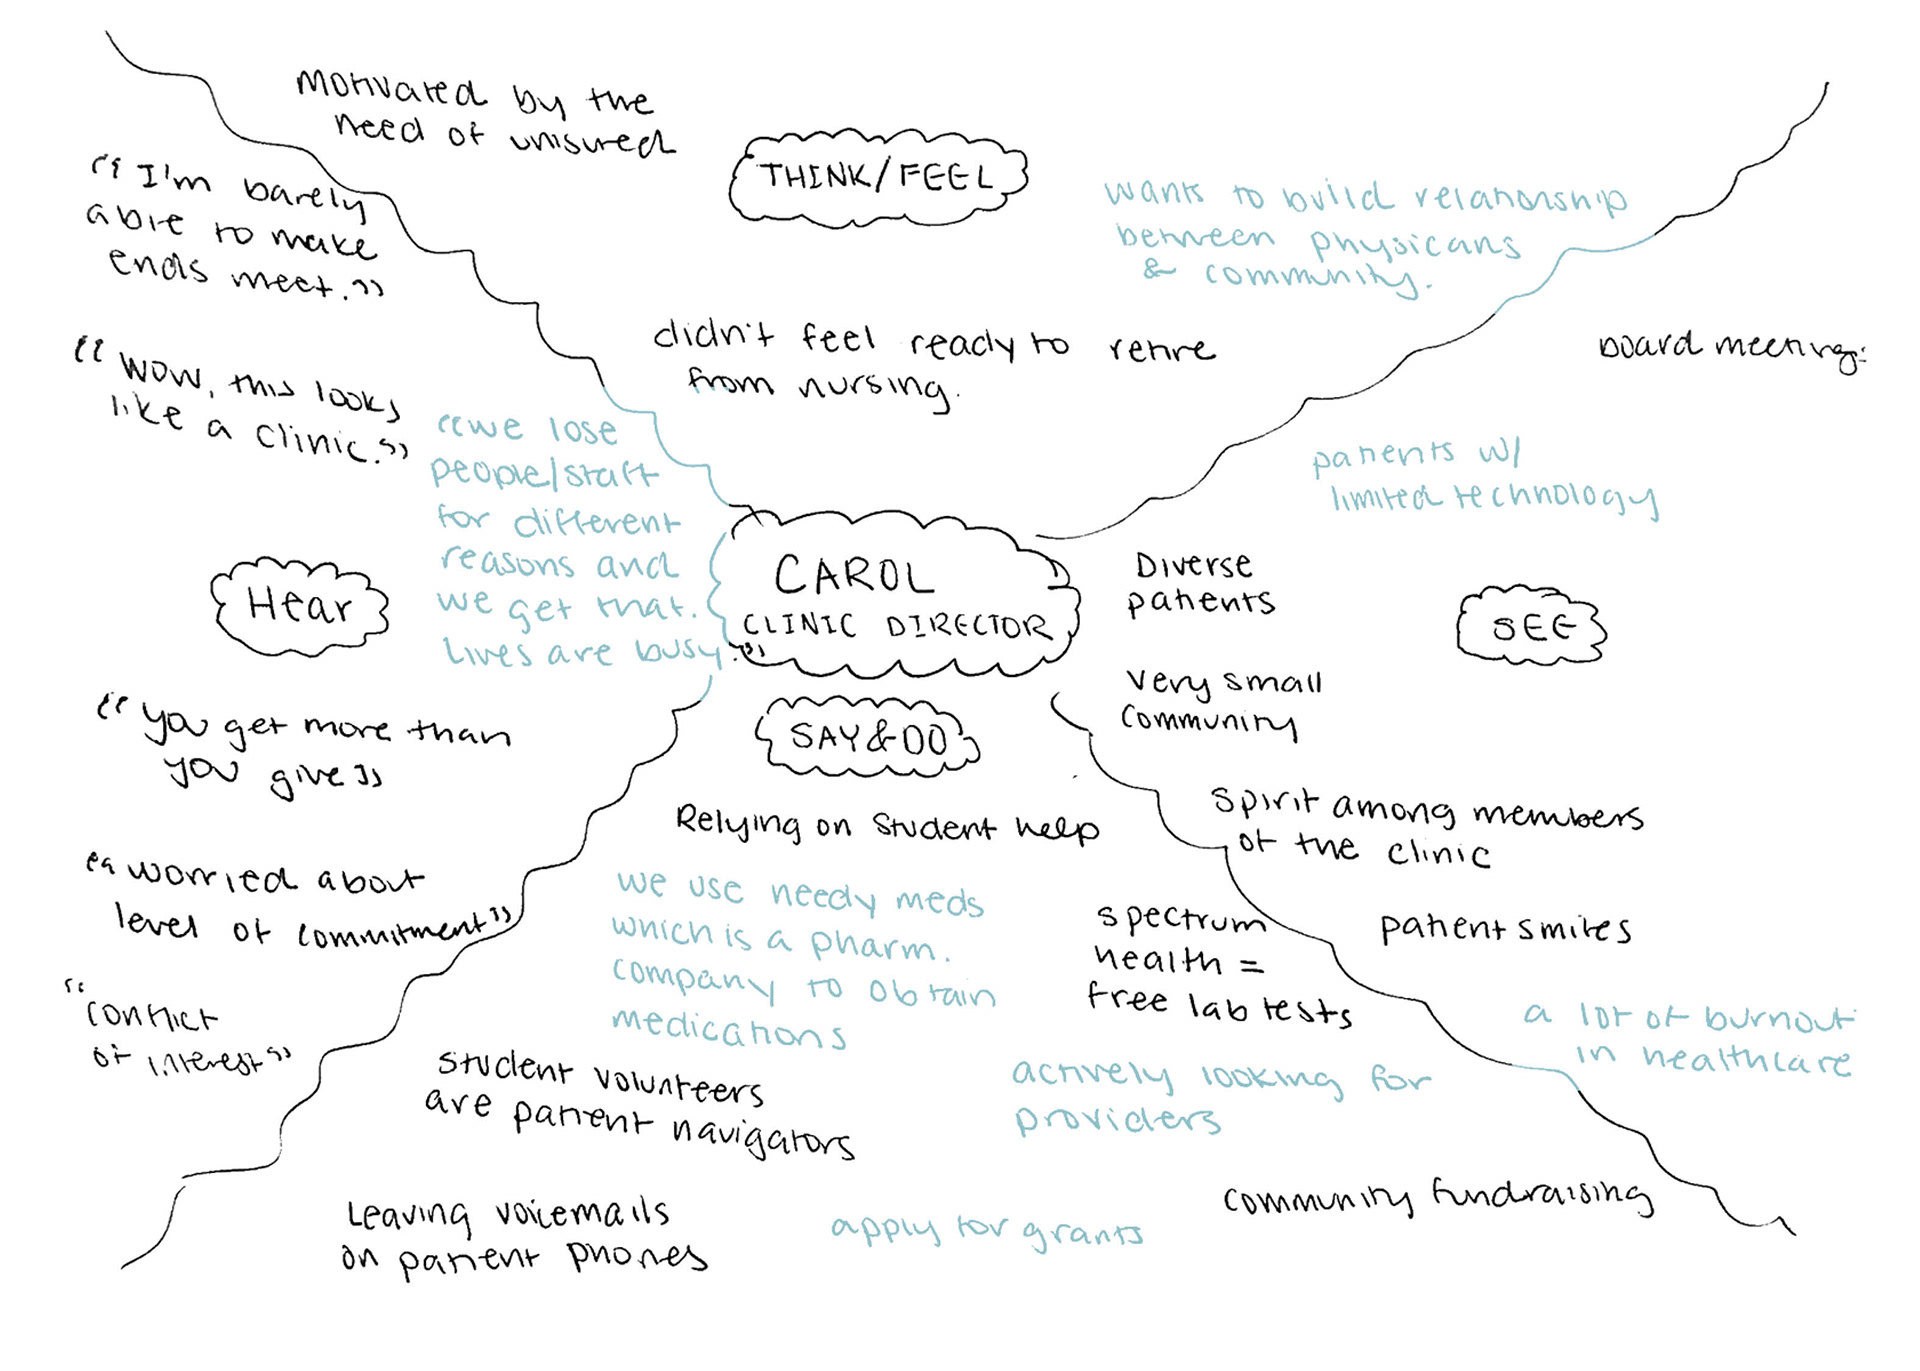 Motivated by the
need of unisured
THINK/FEEL
wants to build relationship
between physicans
& community.
didn't feel ready to retire
from nursing.
"I'm barely
able to make
ends meet."
"Wow, this looks
like a clinic."
"we lose
people/staff
for different
reasons and
we get that.
Lives are busy."
Hear
"you get more than
you give"
"worried about
level of commitment"
"conflict
of interest"
CAROL
CLINIC DIRECTOR
board meeting:
patients w/
limited technology
Diverse
patients
SEE
very small
community
spirit among members
of the clinic
patient smiles
a lot of burnout
in healthcare
SAY & DO
Relying on student help
we use needy meds
which is a pharm.
company to obtain
medications
spectrum
health =
free lab tests
student volunteers
are patient navigators
actively looking for
providers
Leaving voicemails
on patient phones
apply for grants
community fundraising